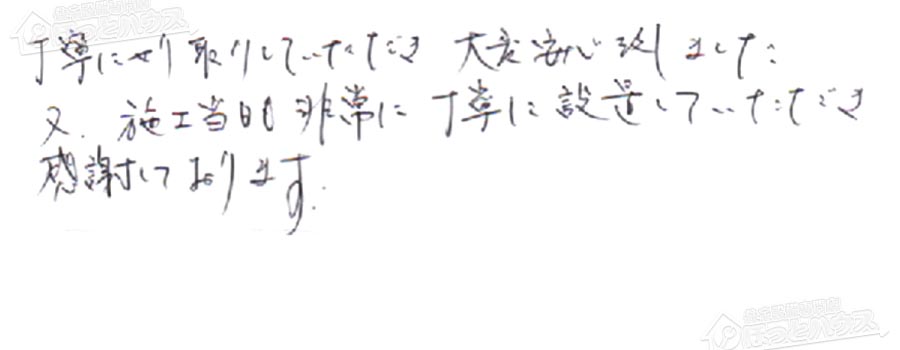 丁寧にやり取りしていただき 大変安心致しました。
又、施工当日も非常に丁寧に設置していただき
感謝しております。
ほっとハウス
ほっとハウス